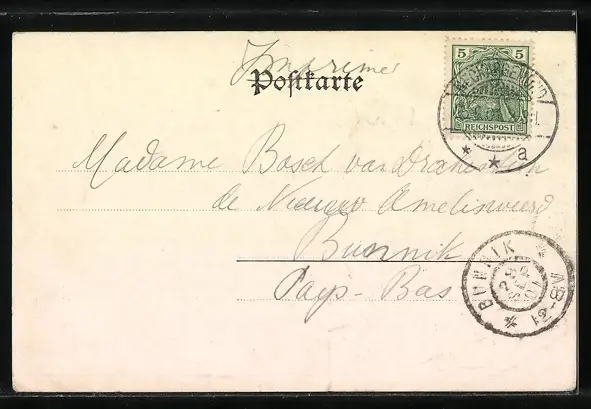 Imprimé
Postkarte
5 5
REICHSPOST
a
Madame Bosch van Drakestein
de Nieuw Amelisweerd
Bunnik
Pays-Bas
BUNNIK
28
SEP
01